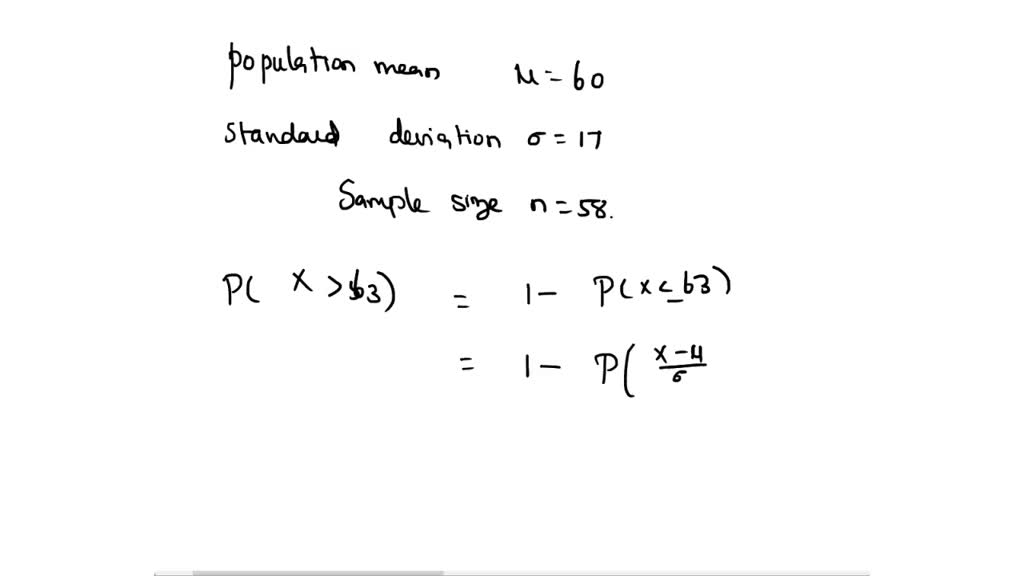 population mean μ = 60
standard deviation σ = 17
Sample size n = 58.
P( X > 63) = 1 - P( x ≤ 63)
= 1 - P( x - μ / σ